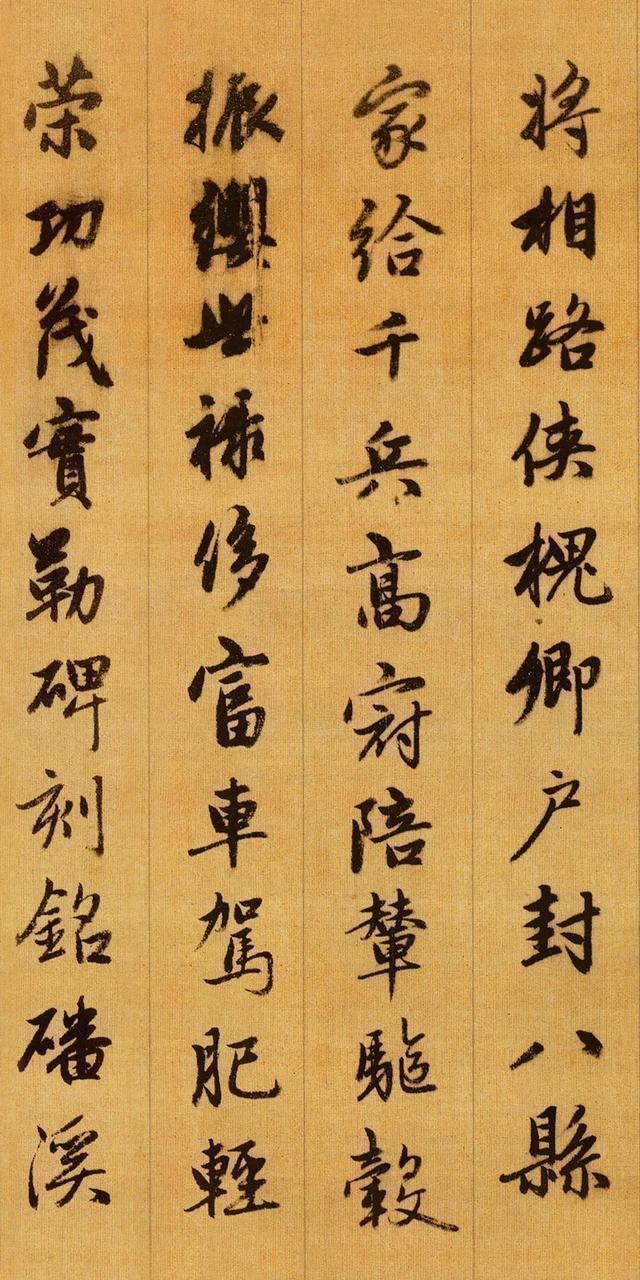 將相路俠槐卿户封八縣
家給千兵高冠陪輦驅轂
振纓世祿侈富車駕肥輕
策功茂實勒碑刻銘磻溪